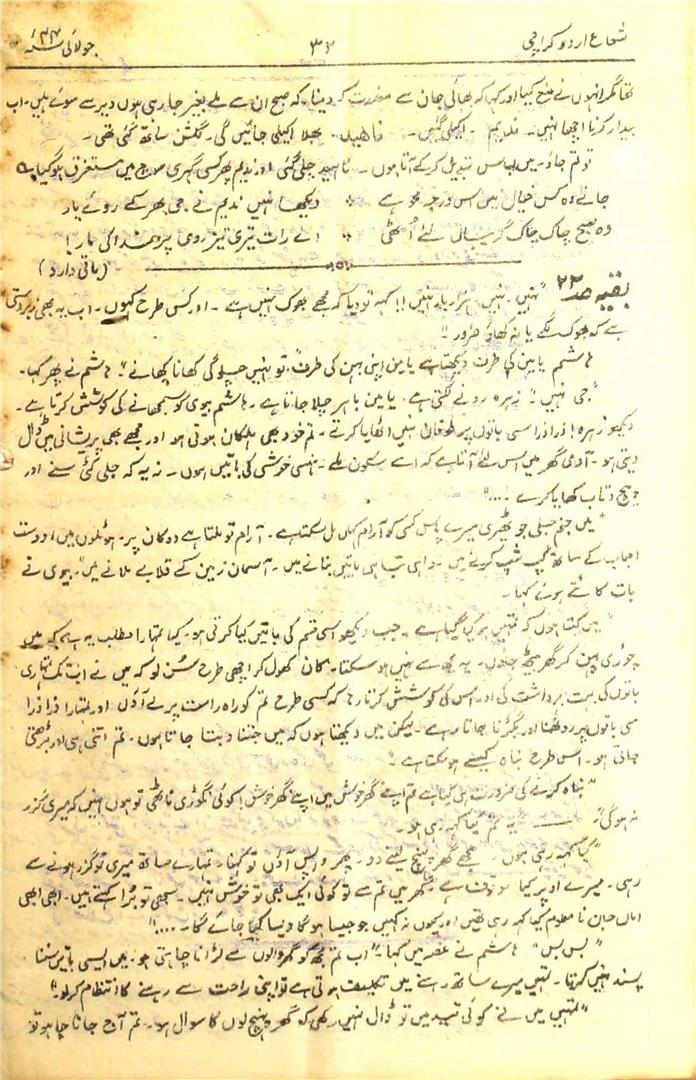 شعاع اردو کراچی ۳۲ جولائی سنہ ۴۴ء
تھا مگر انہوں نے منع کیا اور کہا کہ بھائی جان سے معذرت کر دینا۔ کہ صبح ان سے ملے بغیر جا رہی ہوں دیر سے سوئے ہیں۔ اب
بیدار کرنا اچھا نہیں۔ ندیم ۔ اکیلی گئیں۔ ناھید۔ بھلا اکیلی جائیں گی۔ گلشن ساتھ گئی تھی۔
تو تم جاؤ۔ میں لباس تبدیل کر کے آتا ہوں۔ ناہید چلی گئی اور ندیم پھر کسی گہری سوچ میں مستغرق ہو گیا۔
جانے وہ کس خیال میں اس درجہ محو ہے ؞ دیکھا نہیں ندیم نے جی بھر کے روئے یار
وہ صبح چاک چاک گریباں لئے اُٹھی ؞ اے رات تیری تیز روی پر خدا کی مار!
(باقی دارد)
بقیہ صہ ۲۲ "نہیں۔ نہیں۔ ہزار بار نہیں!! کہہ تو دیا کہ مجھے بھوک نہیں ہے۔ اور کس طرح کہوں۔ اب یہ بھی زبردستی
ہے کہ بھوک لگے یا نہ کھاؤ ضرور!!
ہاشم یامین کی طرف دیکھتا ہے یامین اپنی بہن کی طرف۔ تو نہیں چلو گی کھانا کھانے؟" ہاشم نے پھر کہا۔
"جی نہیں!" زہرہ رونے لگتی ہے۔ یامین باہر چلا جاتا ہے۔ ہاشم بیوی کو سمجھانے کی کوشش کرتا ہے۔
دیکھو زہرہ! ذرا ذرا سی باتوں پر طوفان نہیں اٹھایا کرتے۔ تم خود بھی ہلکان ہوتی ہو اور مجھے بھی پریشانی میں ڈال
دیتی ہو۔ آدمی گھر میں اس لئے آتا ہے کہ اسے سکون ملے۔ ہنسی خوشی کی باتیں ہوں۔ نہ یہ کہ جلی کٹی سنے اور
پیچ و تاب کھایا کرے!..."
"میں جنم جلی جو ٹھیری میرے پاس کسی کو آرام کہاں مل سکتا ہے۔ آرام تو ملتا ہے دوکان پر۔ ہوٹلوں میں! دوست
احباب کے ساتھ گپ شپ کرنے میں۔ واہی تباہی باتیں بنانے میں۔ آسمان زمین کے قلابے ملانے میں"۔ بیوی نے
بات کاٹتے ہوئے کہا۔
"میں کہتا ہوں کہ تمہیں ہو کیا گیا ہے۔ جب دیکھو اسی قسم کی باتیں کیا کرتی ہو۔ کیا تمہارا مطلب یہ ہے کہ میں
چوڑی پہن کر گھر بیٹھ جاؤں۔ یہ مجھ سے نہیں ہو سکتا۔ کان کھول کر اچھی طرح سُن لو کہ میں نے اب تک تمہاری
باتوں کی بہت برداشت کی اور اس کی کوشش کرتا رہا کہ کسی طرح تم کو راہ راست پر لے آؤں اور تمہارا ذرا ذرا
سی باتوں پر روٹھنا اور بگڑنا جاتا رہے۔ لیکن میں دیکھتا ہوں کہ میں جتنا دبتا جاتا ہوں۔ تم اتنی ہی اور بڑھتی
جاتی ہو۔ اس طرح نباہ کیسے ہو سکتا ہے۔"
"نباہ کرنے کی ضرورت ہی کیا ہے تم اپنے گھر خوش میں اپنے گھر خوش! کوئی نگوڑی ناٹھی تو ہوں نہیں کہ میری گزر
نہ ہو گی"۔ ——— یہ تم کیا کہہ رہی ہو۔
"کیا کہہ رہی ہوں۔ مجھے گھر پہنچ لینے دو۔ پھر واپس آؤں تو کہنا۔ تمہارے ساتھ میری تو گزر ہونے سے
رہی۔ میرے اوپر کیا موقوف ہے۔ گھر میں تم سے تو کوئی ایک بھی تو خوش نہیں۔ سبھی تو بُرا کہتے ہیں۔ ابھی ابھی
اماں جان نا معلوم کیا کہہ رہی تھیں اور کیوں نہ کہیں جو جیسا ہو گا ویسا کہا جائے گا۔...."
"بس بس" ہاشم نے غصہ میں کہا۔ "اب تم مجھ کو گھر والوں سے لڑانا چاہتی ہو۔ میں ایسی باتیں سننا
پسند نہیں کرتا۔ تمہیں میرے ساتھ رہنے میں تکلیف ہوتی ہے تو اپنی راحت سے رہنے کا انتظام کر لو۔"
"تمہیں میں نے کوئی قید میں تو ڈال نہیں رکھی کہ گھر پہنچ لوں کا سوال ہو۔ تم آج جانا چاہو تو